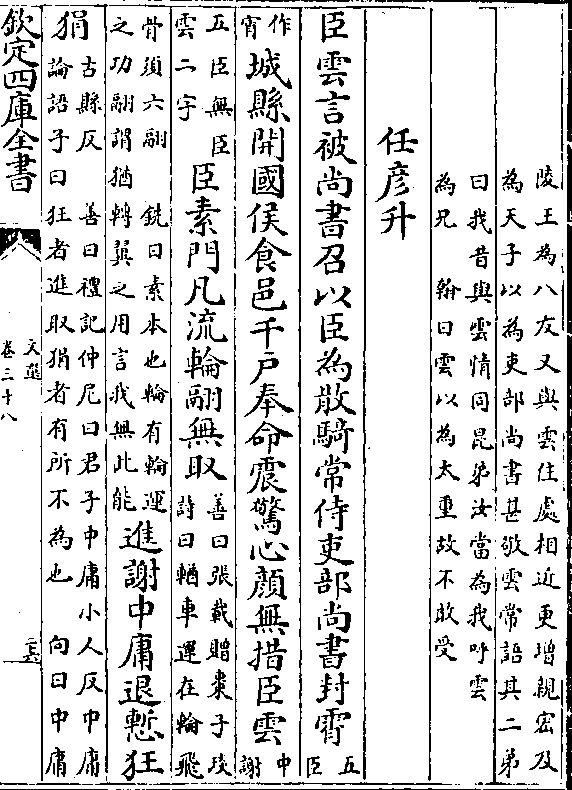 陵王為八友又與雲住處相近更增親密及
為天子以為吏部尚書甚敬雲常語其二弟
曰我昔與雲情同昆弟汝當為我呼雲
為兄　翰曰雲以為太重故不敢受
任彦升
臣雲言被尚書召以臣為散騎常侍吏部尚書封霄五臣
作宵城縣開國侯食邑千戶奉命震驚心顏無措臣雲中謝
五臣無臣雲二字臣素門凡流輪翮無取善曰張載贈棗子琰詩曰輶車運在輪飛
骨須六翮　銑曰素本也輪有輪運之功翮謂猶轉翼之用言我無此能進謝中庸退慙狂
狷古縣反　善曰禮記仲尼曰君子中庸小人反中庸論語子曰狂者進取狷者有所不為也　向曰中庸
欽定四庫全書
文選
卷三十八